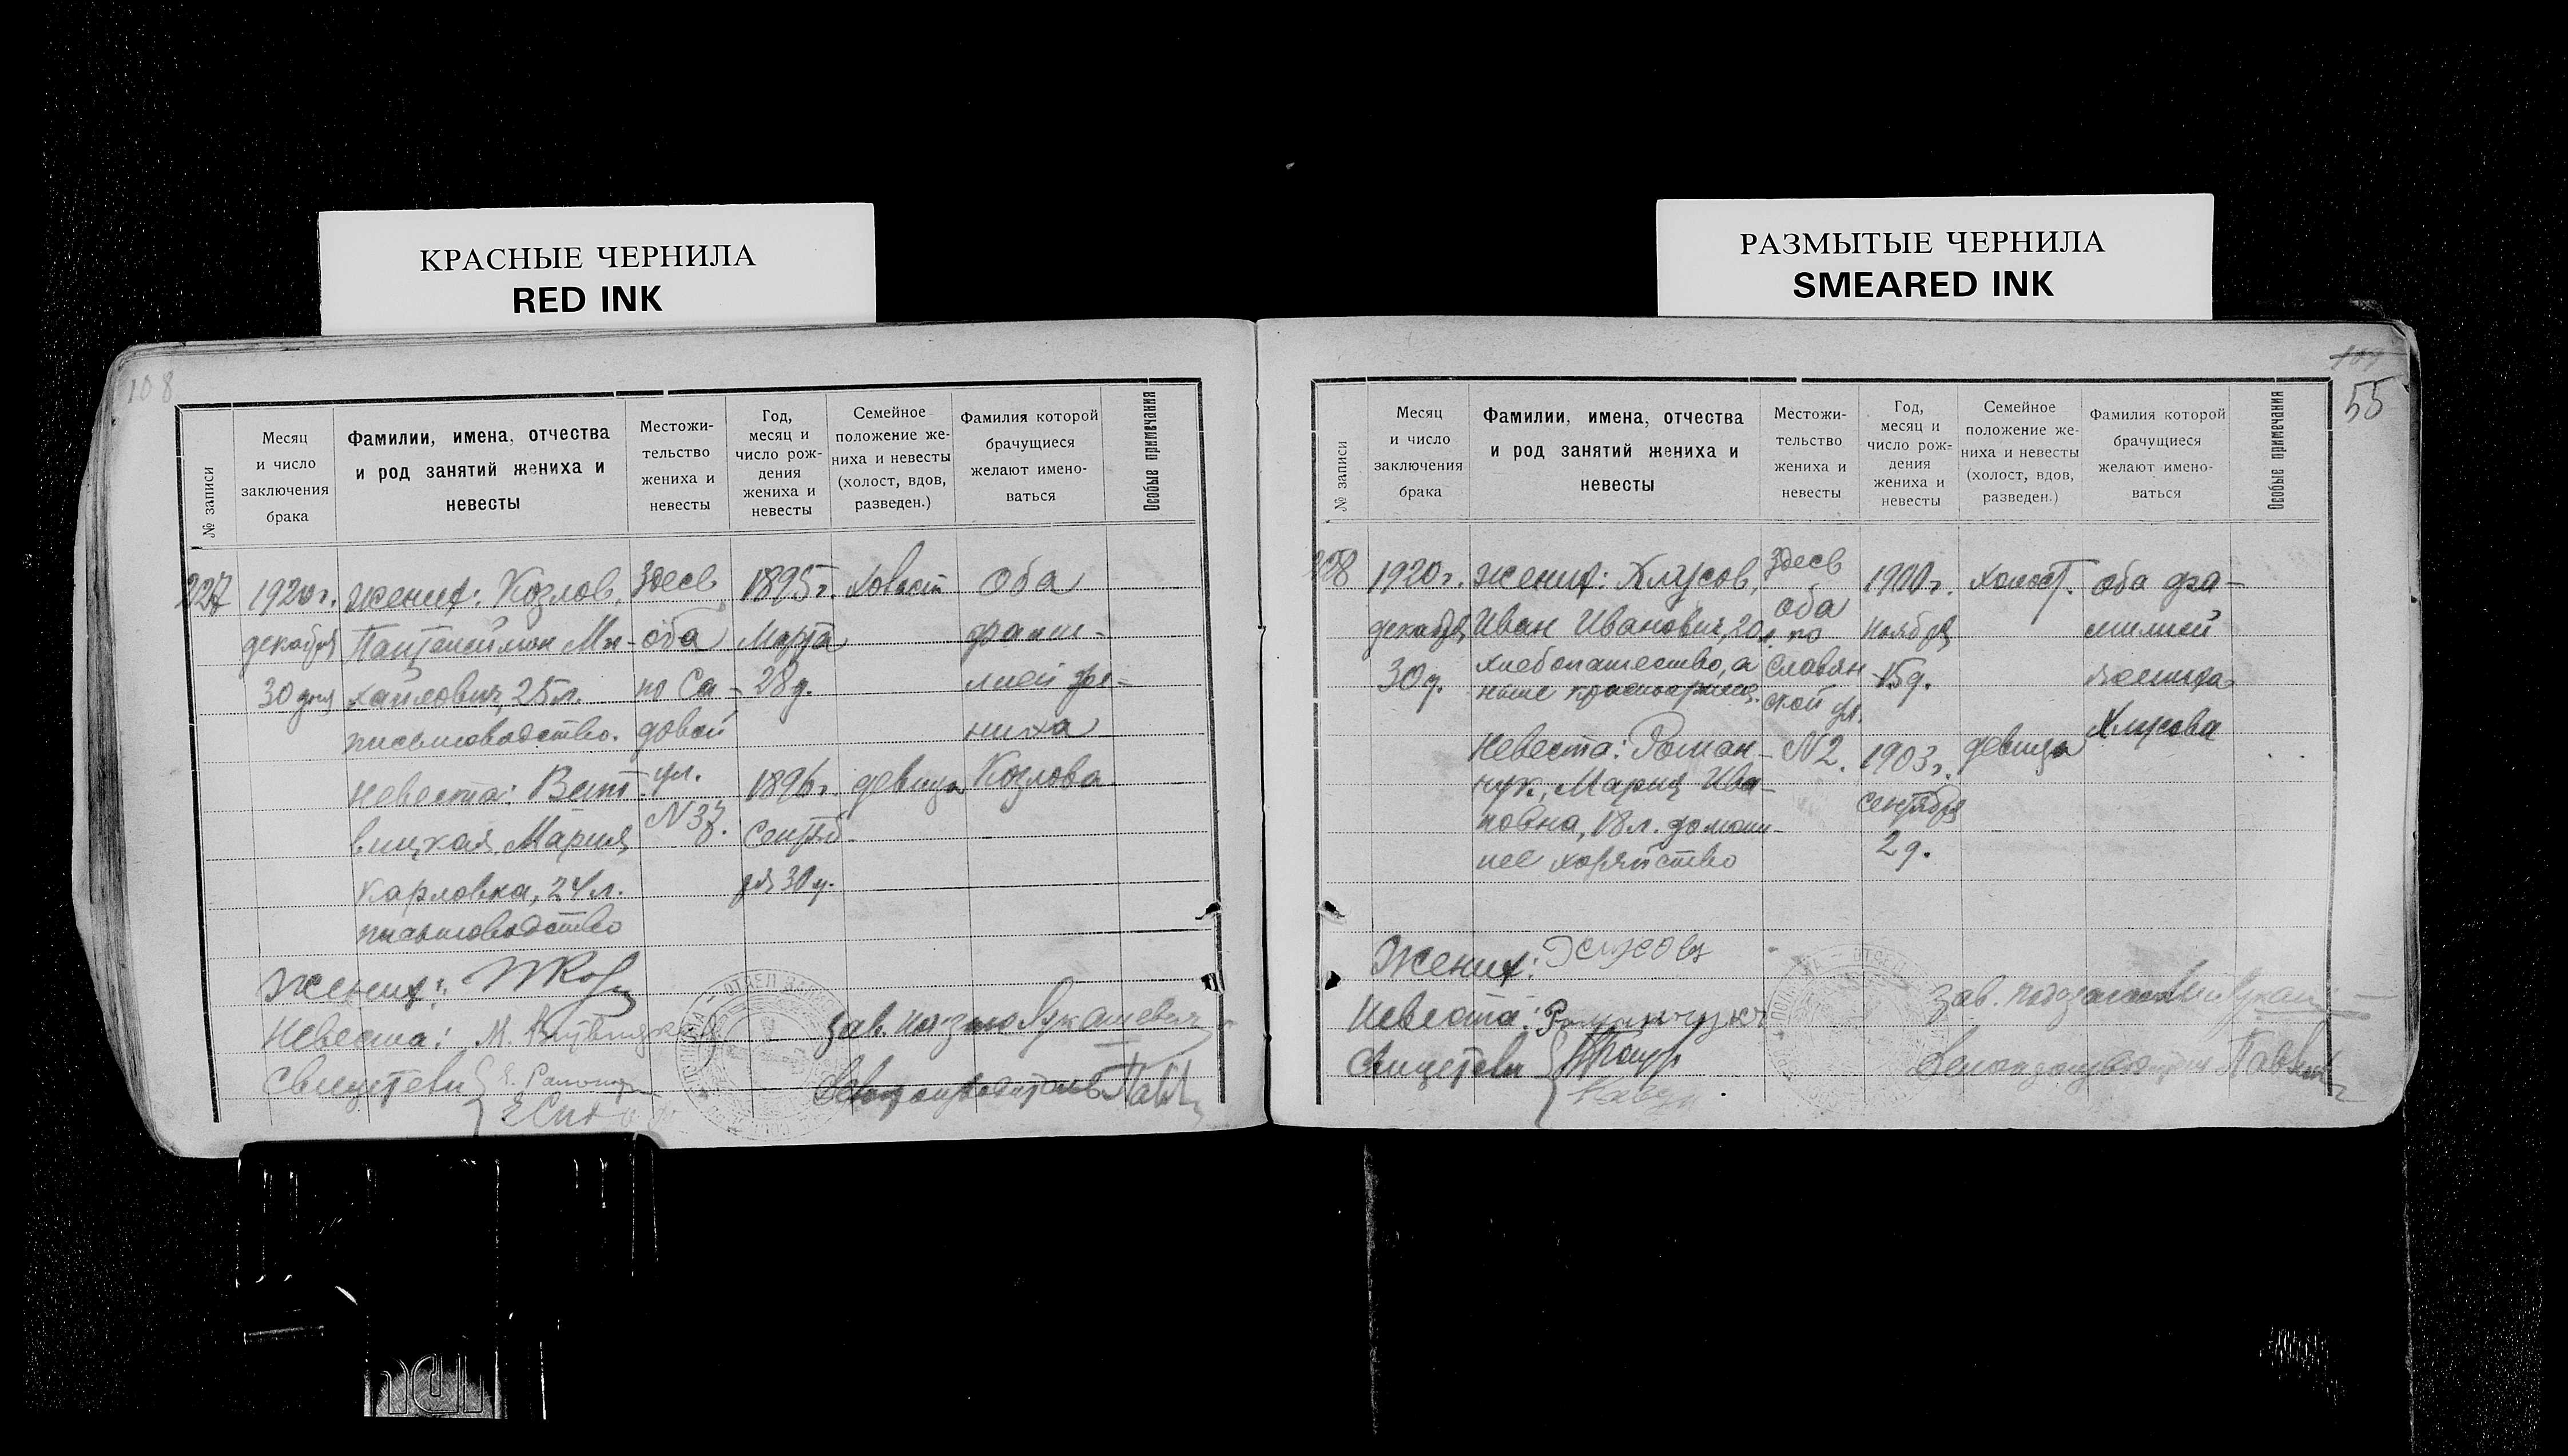 КРАСНЫЕ ЧЕРНИЛА
RED INK
РАЗМЫТЫЕ ЧЕРНИЛА
SMEARED INK
108
№ записи
Месяц
и число
заключения
брака
Фамилии, имена, отчества
и род занятий жениха и
невесты
Местожи-
тельство
жениха и
невесты
Год,
месяц и
число рож-
дения
жениха и
невесты
Семейное
положение же-
ниха и невесты
(холост, вдов,
разведен.)
Фамилия которой
брачущиеся
желают имено-
ваться
Особые примечания
227
1920г.
декабря
30 дня
Жених: Козлов,
Пантелеймон Ми-
хайлович, 25 л.
письмоводство.
Невеста: Вит-
вицкая, Мария
Карловна, 24 л.
письмоводство
Здесь
оба
по Са-
довой
ул.
N 37.
1895г.
Марта
28 д.
1896г.
Сентяб-
ря 30 д.
Холост
девица
Оба
фами-
лией же-
ниха
Козлова
Жених:
Невеста: М. Витвицкая
Свидетели
Лукашевич
Делопроизводитель
109
55
№ записи
Месяц
и число
заключения
брака
Фамилии, имена, отчества
и род занятий жениха и
невесты
Местожи-
тельство
жениха и
невесты
Год,
месяц и
число рож-
дения
жениха и
невесты
Семейное
положение же-
ниха и невесты
(холост, вдов,
разведен.)
Фамилия которой
брачущиеся
желают имено-
ваться
Особые примечания
228
1920г.
декабря
30 д.
Жених: Хлусов,
Иван Иванович, 20 л.
хлебопашество, а
ныне красноармеец.
Невеста: Роман-
чук, Мария Ива-
новна, 18 л. домаш-
нее хозяйство
Здесь
оба
по
Славян
ской ул.
N 2.
1900г.
ноября
15 д.
1903г.
сентября
2 д.
Холост.
девица
Оба фа-
милией
жениха
Хлусова
Жених:
Невеста: Романчук
Свидетели
Зав.
Делопроизводитель